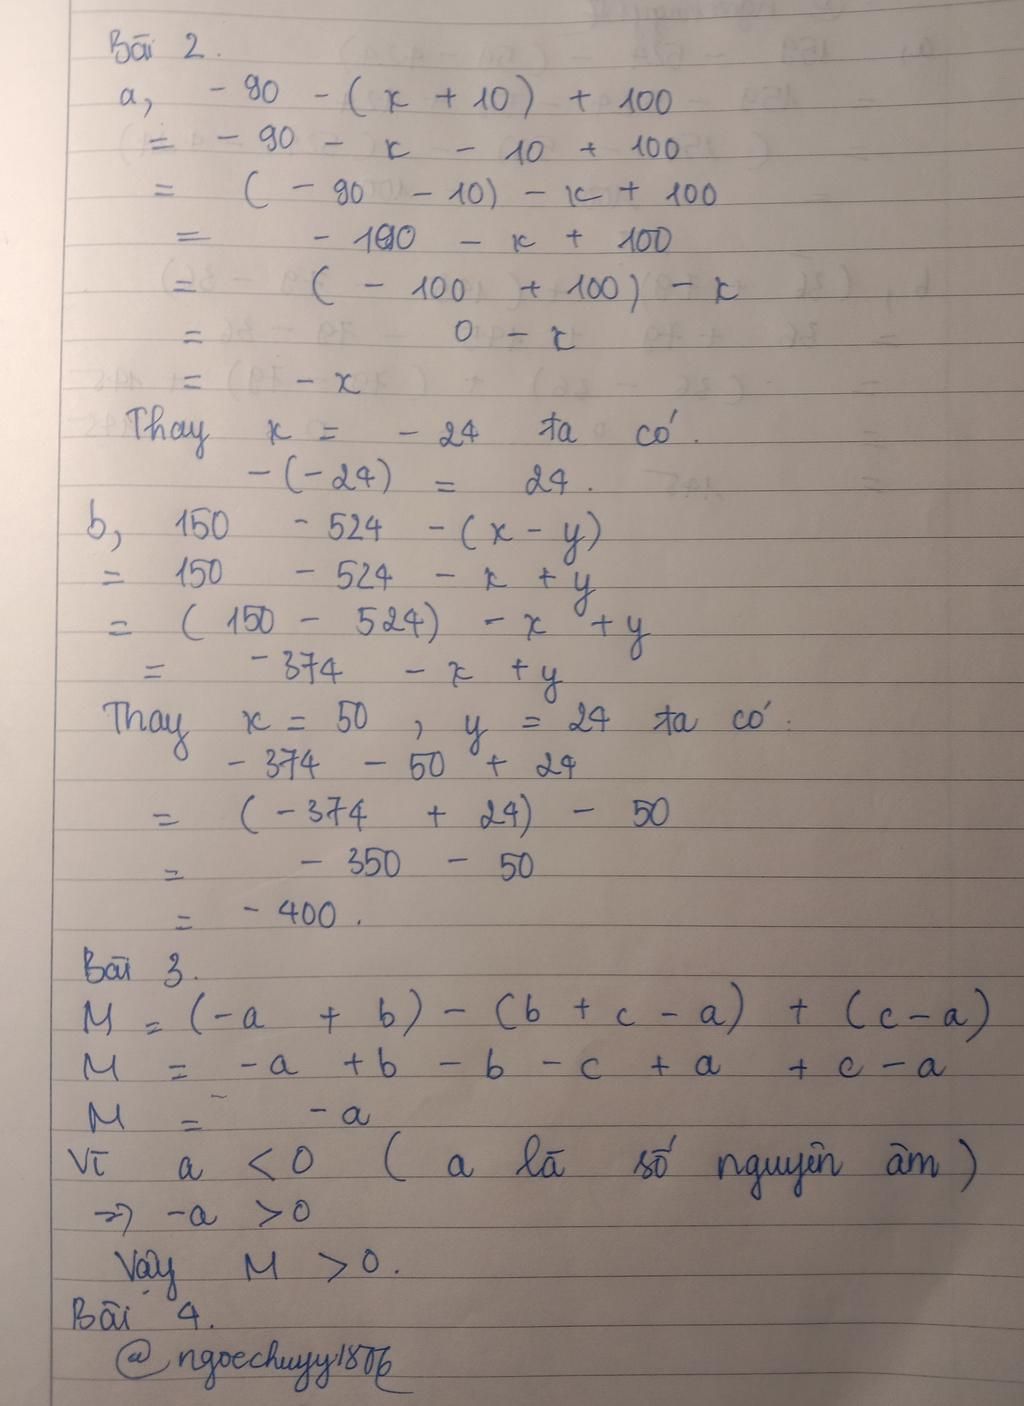 Bài 2.
a, - 90 - (x + 10) + 100
= - 90 - x - 10 + 100
= ( - 90 - 10) - x + 100
= - 100 - x + 100
= ( - 100 + 100) - x
= 0 - x
= - x
Thay x = - 24 ta có.
-(-24) = 24.
b, 150 - 524 - (x - y)
= 150 - 524 - x + y
= (150 - 524) - x + y
= - 374 - x + y
Thay x = 50 , y = 24 ta có:
- 374 - 50 + 24
= (- 374 + 24) - 50
= - 350 - 50
= - 400.
Bài 3.
M = (-a + b) - (b + c - a) + (c - a)
M = -a + b - b - c + a + c - a
M = - a
Vì a < 0 ( a là số nguyên âm )
=> -a > 0
Vậy M > 0.
Bài 4.